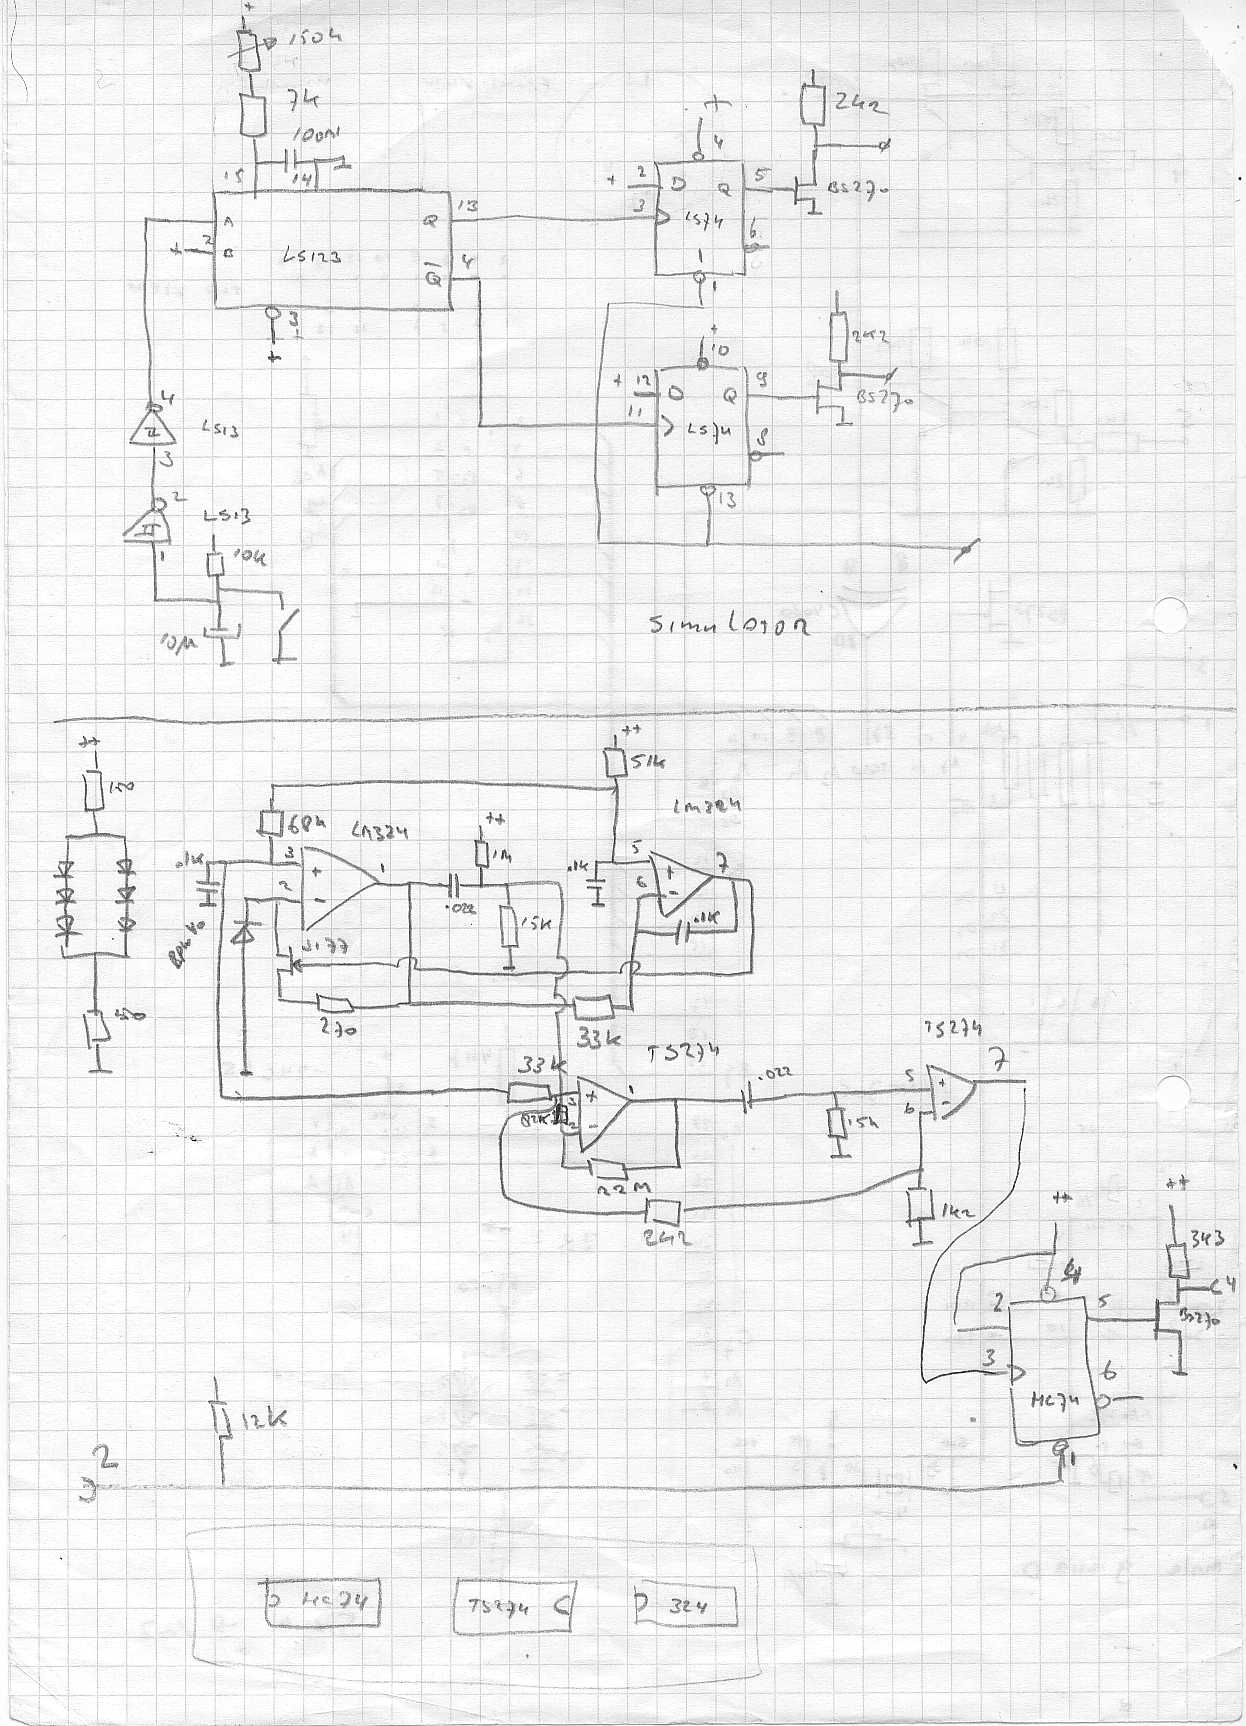 +
150k
7k
100n
15
14
A
Q
13
+ 2
B
LS123
Q
4
3
+
4
LS13
3
2
LS13
1
10k
10µ
+
4
+ 2
D
Q
5
3
LS74
6
1
1
2k2
BS270
+
10
+ 12
D
Q
9
11
LS74
8
13
2k2
BS270
Simulator
++
150
++
51k
LM324
68k
LM324
++
.1k
3
+
1
1M
2
-
.022
15k
.1k
5
+
7
6
-
.1k
J177
270
33k
TS274
33k
3
+
1
82k
2
-
22M
2k2
.022
15k
TS274
5
+
7
6
-
1k2
++
++
3k3
4
C4
2
5
BS270
3
6
HC74
1
12k
2
HC74
TS274
324